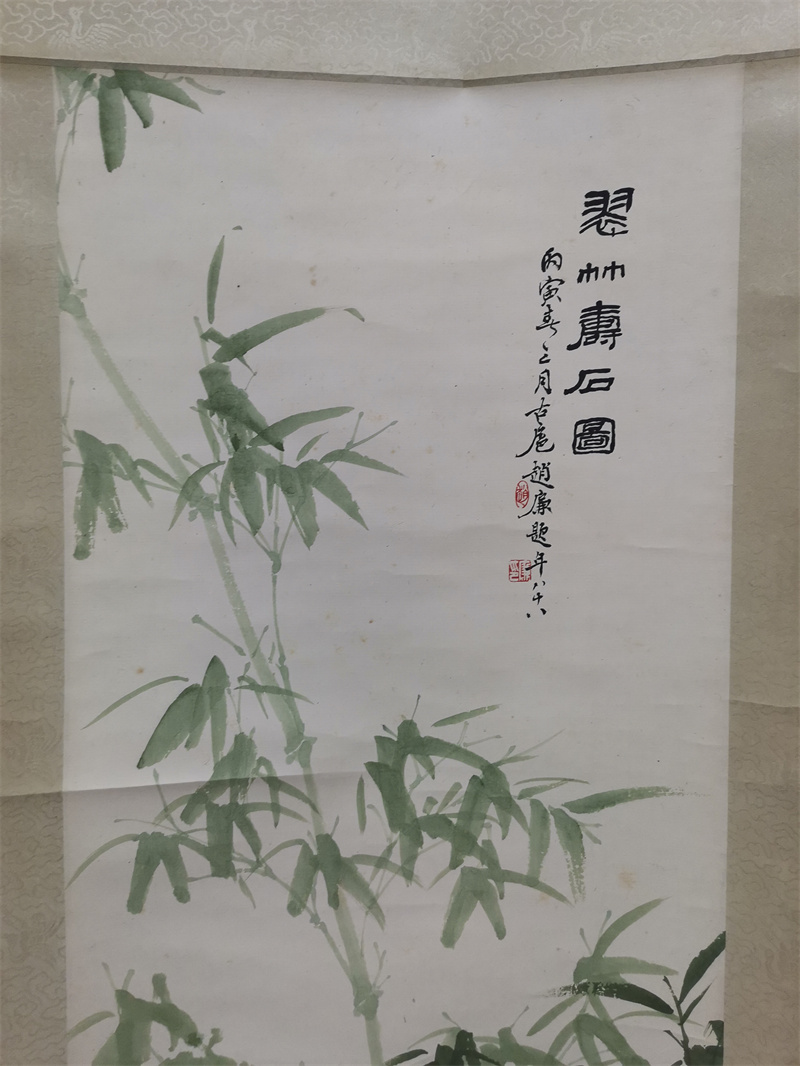 翠竹壽石圖
丙寅春三月古扈趙廉題年八十八